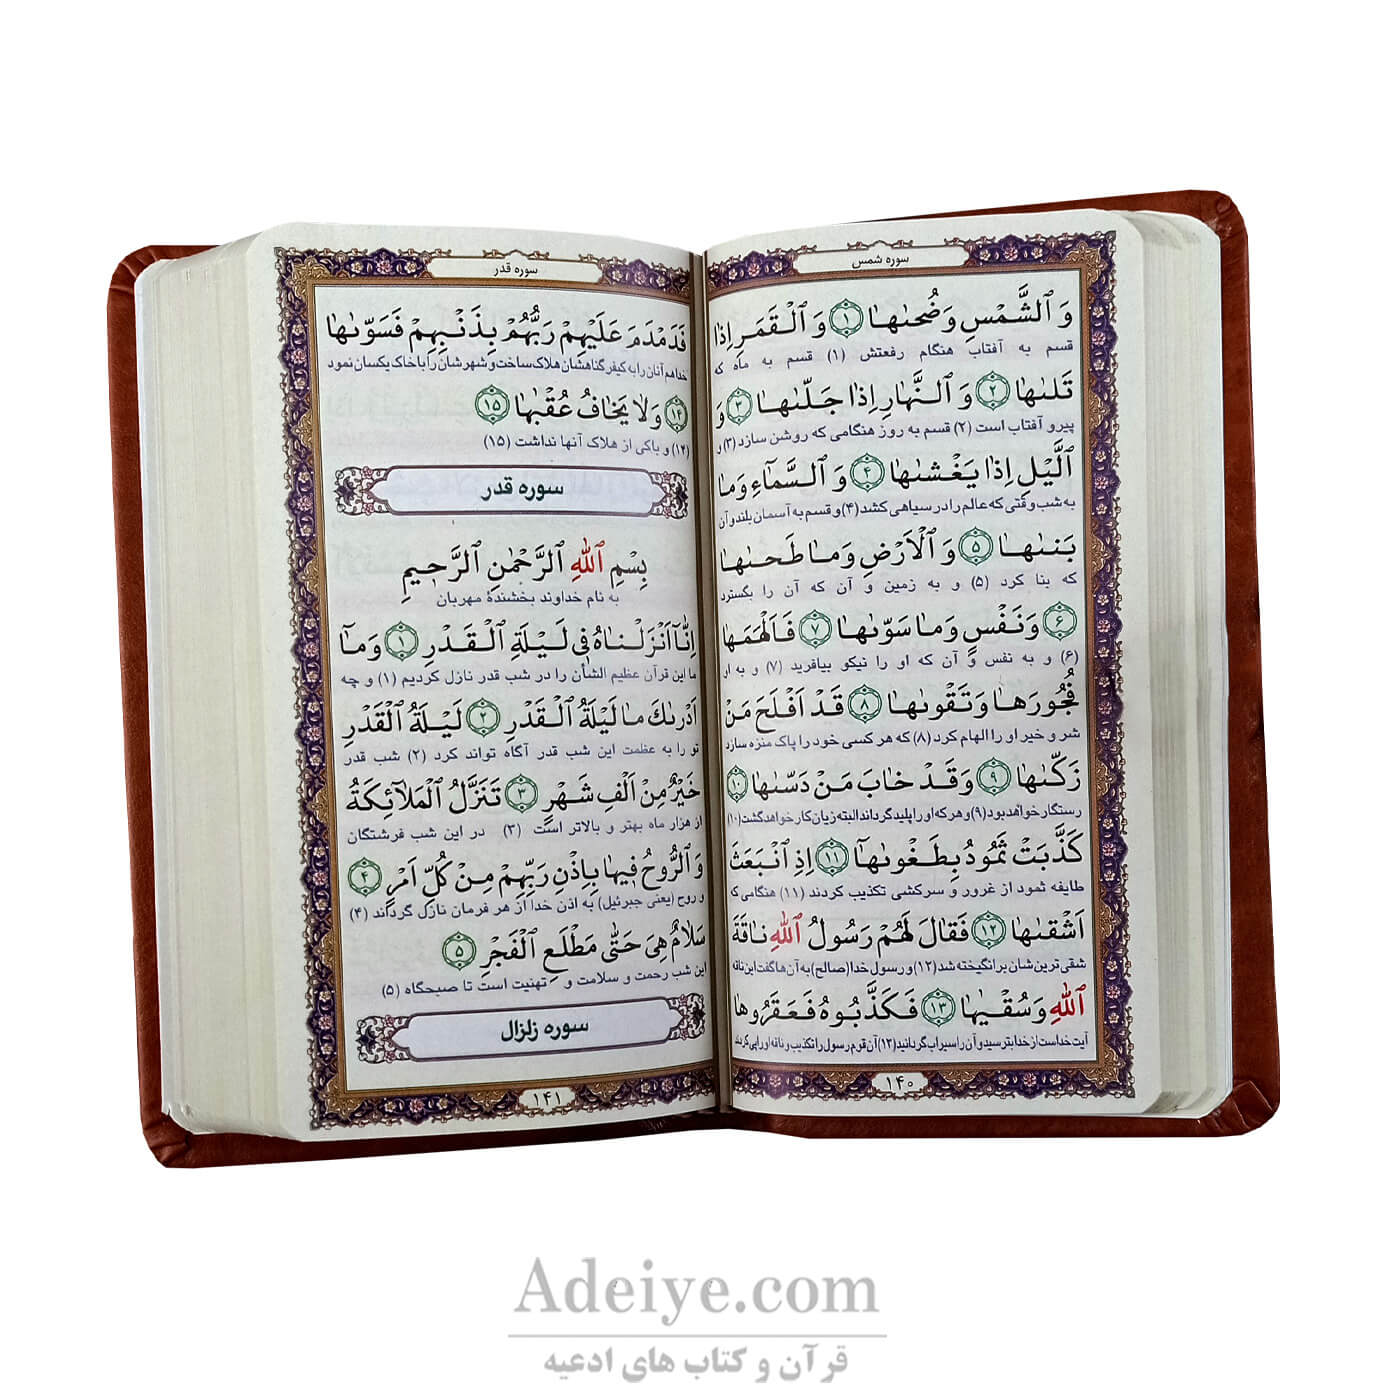 سوره شمس
وَ ٱلشَّمْسِ وَ ضُحىٰها ﴿۱﴾ وَ ٱلْقَمَرِ اِذا
قسم به آفتاب هنگام رفعتش (۱) قسم به ماه که
تَلىٰها ﴿۲﴾ وَ ٱلنَّهارِ اِذا جَلّىٰها ﴿۳﴾ وَ
پیرو آفتاب است (۲) قسم به روز هنگامی که روشن سازد (۳) و
ٱلَّيْلِ اِذا يَغْشىٰها ﴿۴﴾ وَ ٱلسَّمآءِ وَ ما
به شب وقتی که عالم را در سیاهی کشد (۴) و قسم به آسمان بلند و آن
بَنىٰها ﴿۵﴾ وَ ٱلْاَرْضِ وَ ما طَحىٰها
که بنا کرد (۵) و به زمین و آن که آن را بگسترد
﴿۶﴾ وَ نَفْسٍ وَ ما سَوّىٰها ﴿۷﴾ فَاَلْهَمَها
(۶) و به نفس و آن که او را نیکو بیافرید (۷) و به او
فُجُورَها وَ تَقْوىٰها ﴿۸﴾ قَدْ اَفْلَحَ مَنْ
شر و خیر او را الهام کرد (۸) که هر کسی خود را پاک منزه سازد
زَكّىٰها ﴿۹﴾ وَ قَدْ خابَ مَنْ دَسّىٰها ﴿۱۰﴾
رستگار خواهد بود (۹) و هر که او را پلید گرداند البته زیان کار خواهد گشت (۱۰)
كَذَّبَتْ ثَمُودُ بِطَغْوىٰهآ ﴿۱۱﴾ اِذِ ٱنْبَعَثَ
طایفه ثمود از غرور و سرکشی تکذیب کردند (۱۱) هنگامی که
اَشْقىٰها ﴿۱۲﴾ فَقالَ لَهُمْ رَسُولُ ٱللهِ ناقَةَ
شقی ترین شان برانگیخته شد (۱۲) و رسول خدا (صالح) به آن ها گفت این ناقه
ٱللهِ وَ سُقْيٰها ﴿۱۳﴾ فَكَذَّبُوهُ فَعَقَرُوها
آیت خداست از خدا بترسید و آن را سیراب گردانید (۱۳) آن قوم رسول را تکذیب و ناقه او را پی کردند
۱۴۰
سوره قدر
فَدَمْدَمَ عَلَيْهِمْ رَبُّهُمْ بِذَنْبِهِمْ فَسَوّىٰها
خدا هم آنان را به کیفر گناهشان هلاک ساخت و شهرشان را با خاک یکسان نمود
﴿۱۴﴾ وَ لا يَخافُ عُقْبٰها ﴿۱۵﴾
(۱۴) و باکی از هلاک آنها نداشت (۱۵)
سوره قدر
بِسْمِ ٱللهِ ٱلرَّحْمٰنِ ٱلرَّحيمِ
به نام خداوند بخشندهٔ مهربان
اِنّآ اَنْزَلْناهُ في لَيْلَةِ ٱلْقَدْرِ ﴿۱﴾ وَ مآ
ما این قرآن عظیم الشأن را در شب قدر نازل کردیم (۱) و چه
اَدْرىٰكَ ما لَيْلَةُ ٱلْقَدْرِ ﴿۲﴾ لَيْلَةُ ٱلْقَدْرِ
تو را به عظمت این شب قدر آگاه تواند کرد (۲) شب قدر
خَيْرٌ مِنْ اَلْفِ شَهْرٍ ﴿۳﴾ تَنَزَّلُ ٱلْمَلآئِكَةُ
از هزار ماه بهتر و بالاتر است (۳) در این شب فرشتگان
وَ ٱلرُّوحُ فيها بِاِذْنِ رَبِّهِمْ مِنْ كُلِّ اَمْرٍ ﴿۴﴾
و روح (یعنی جبرئیل) به اذن خدا از هر فرمان نازل گرداند (۴)
سَلامٌ هِيَ حَتّٰى مَطْلَعِ ٱلْفَجْرِ ﴿۵﴾
این شب رحمت و سلامت و تهنیت است تا صبحگاه (۵)
سوره زلزال
۱۴۱
Adeiye.com
قرآن و کتاب های ادعیه